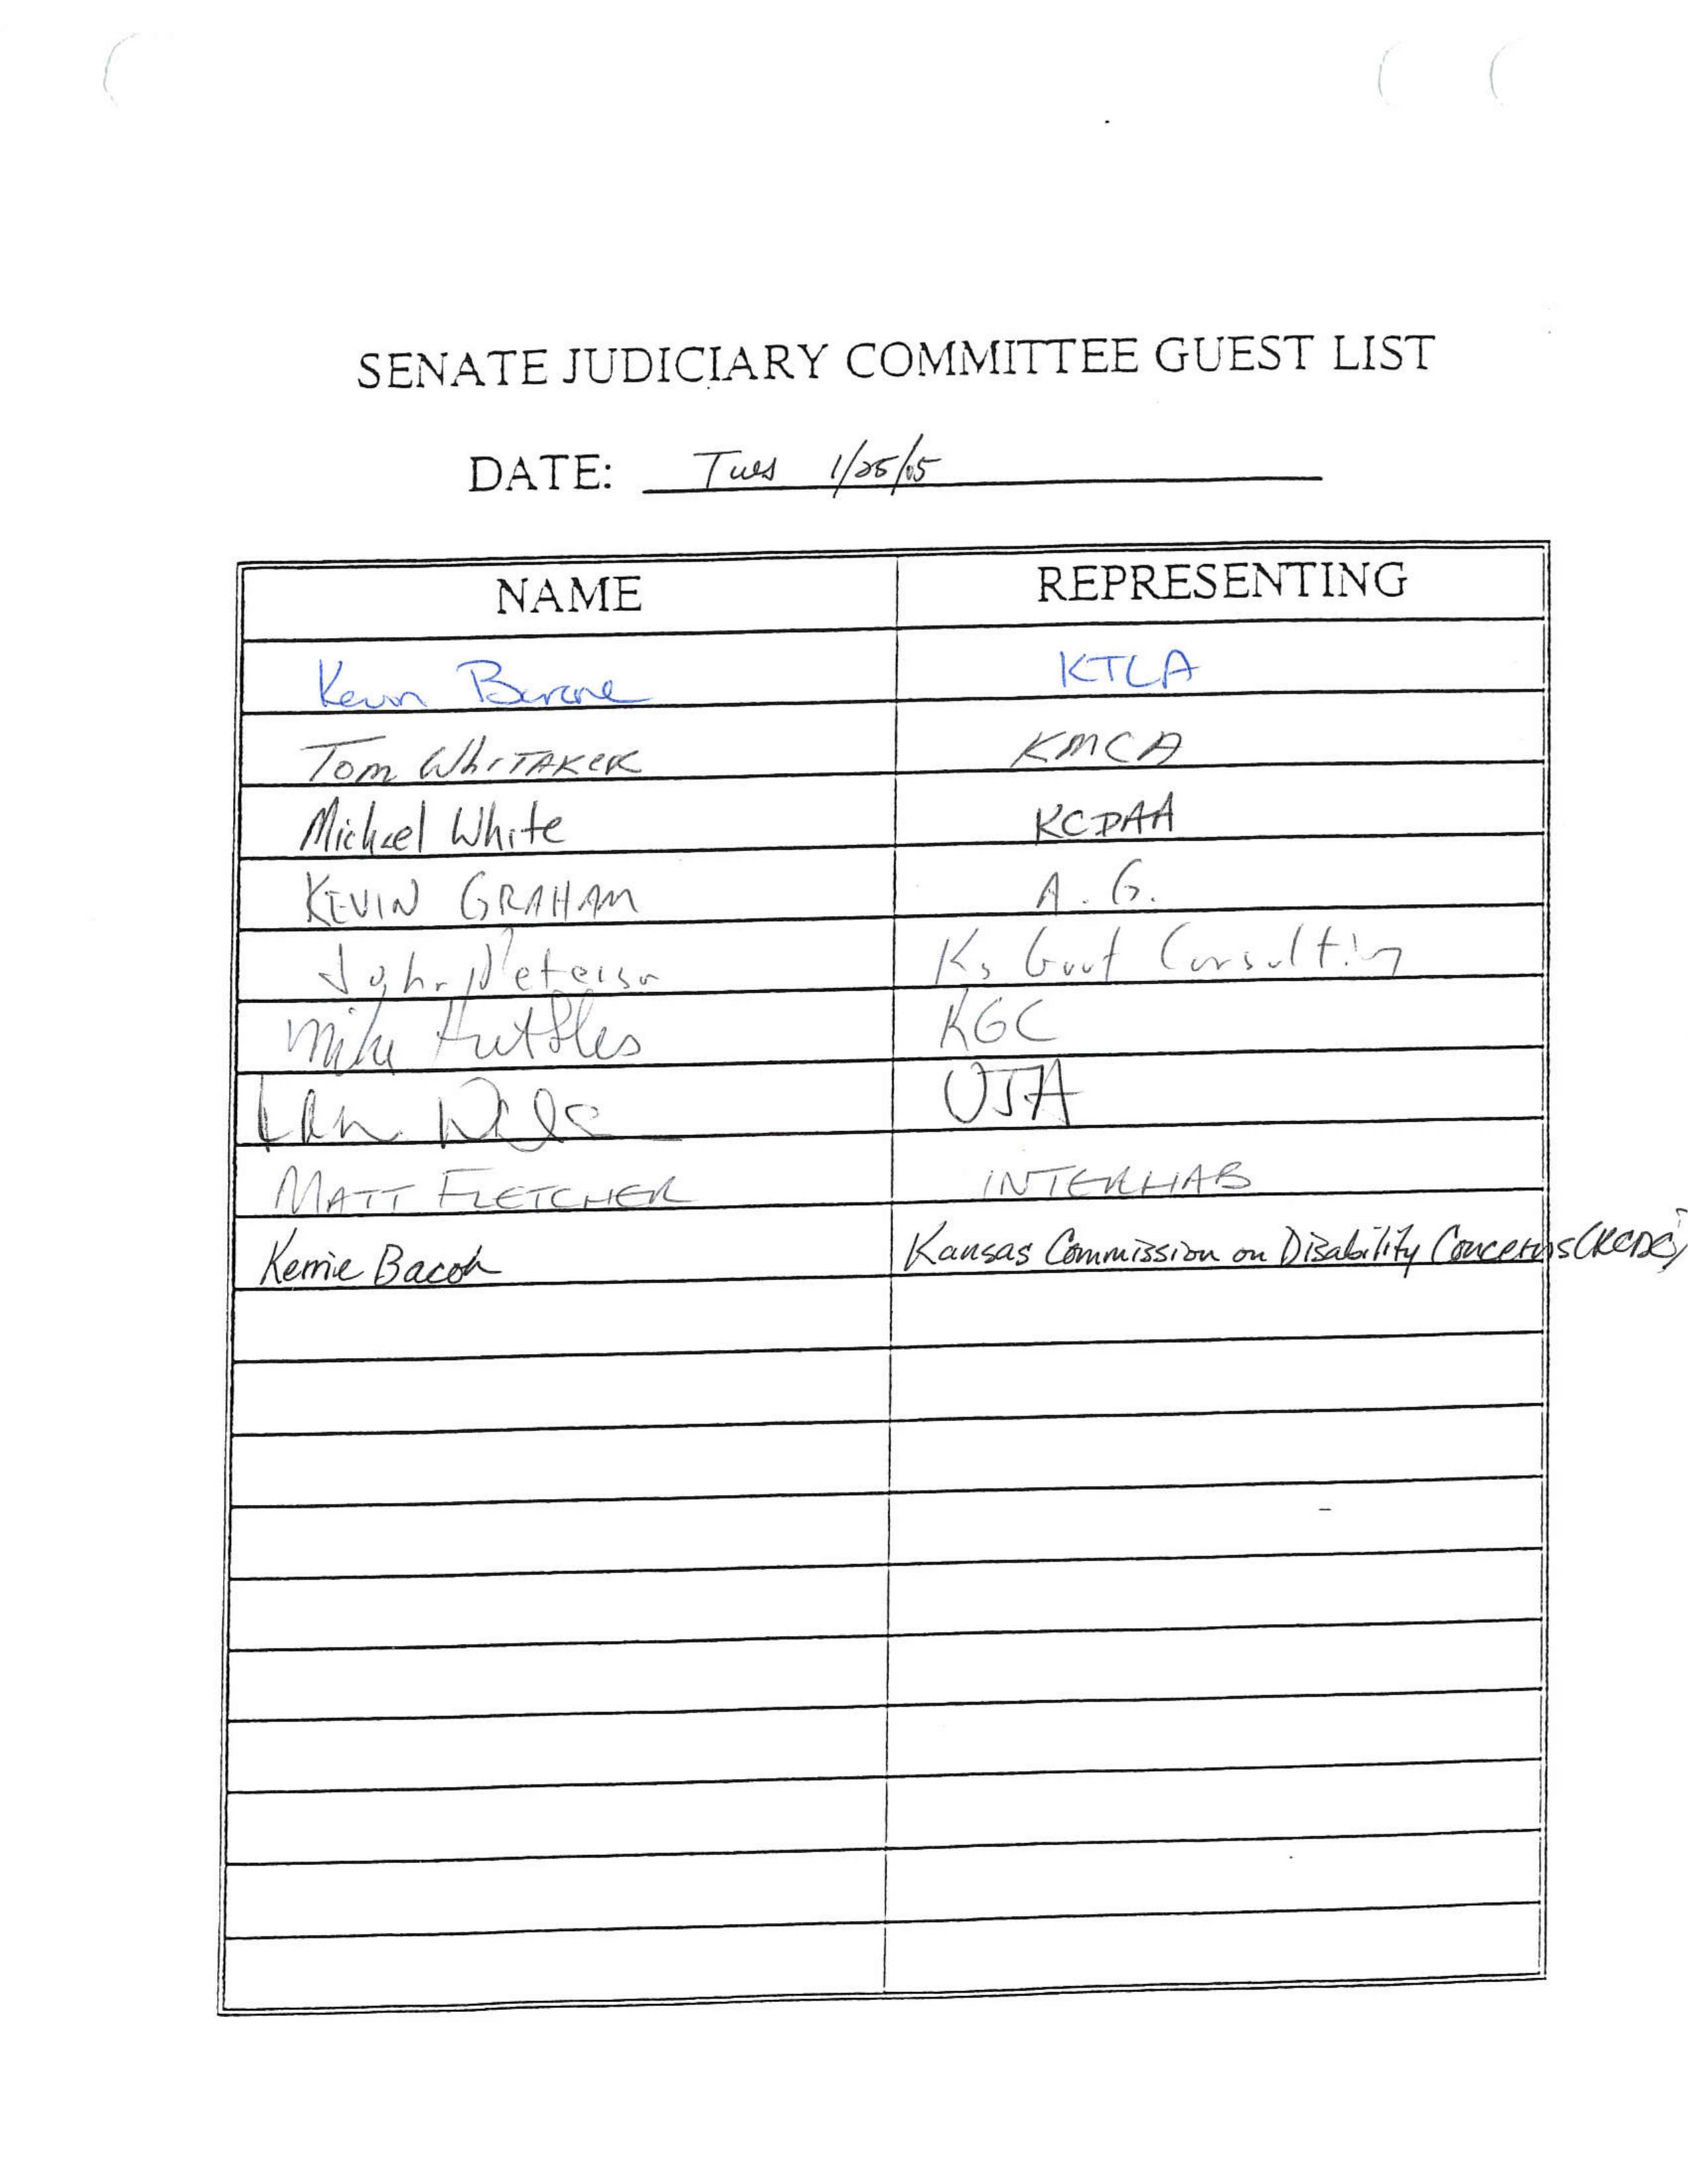 SENATE JUDICIARY COMMITTEE GUEST LIST
DATE: Tues 1/25/05
NAME REPRESENTING
Kevin KTLA
Tom WhITAKER KMCA
Michael White KCDAA
KEVIN GRAHAM A.G.
John Peterson Ks Govt Consulting
Mike Huttles KGC
MATT FLETCHER INTERHAB
Kerrie Bacon Kansas Commission on Disability Concerns (KCDC)